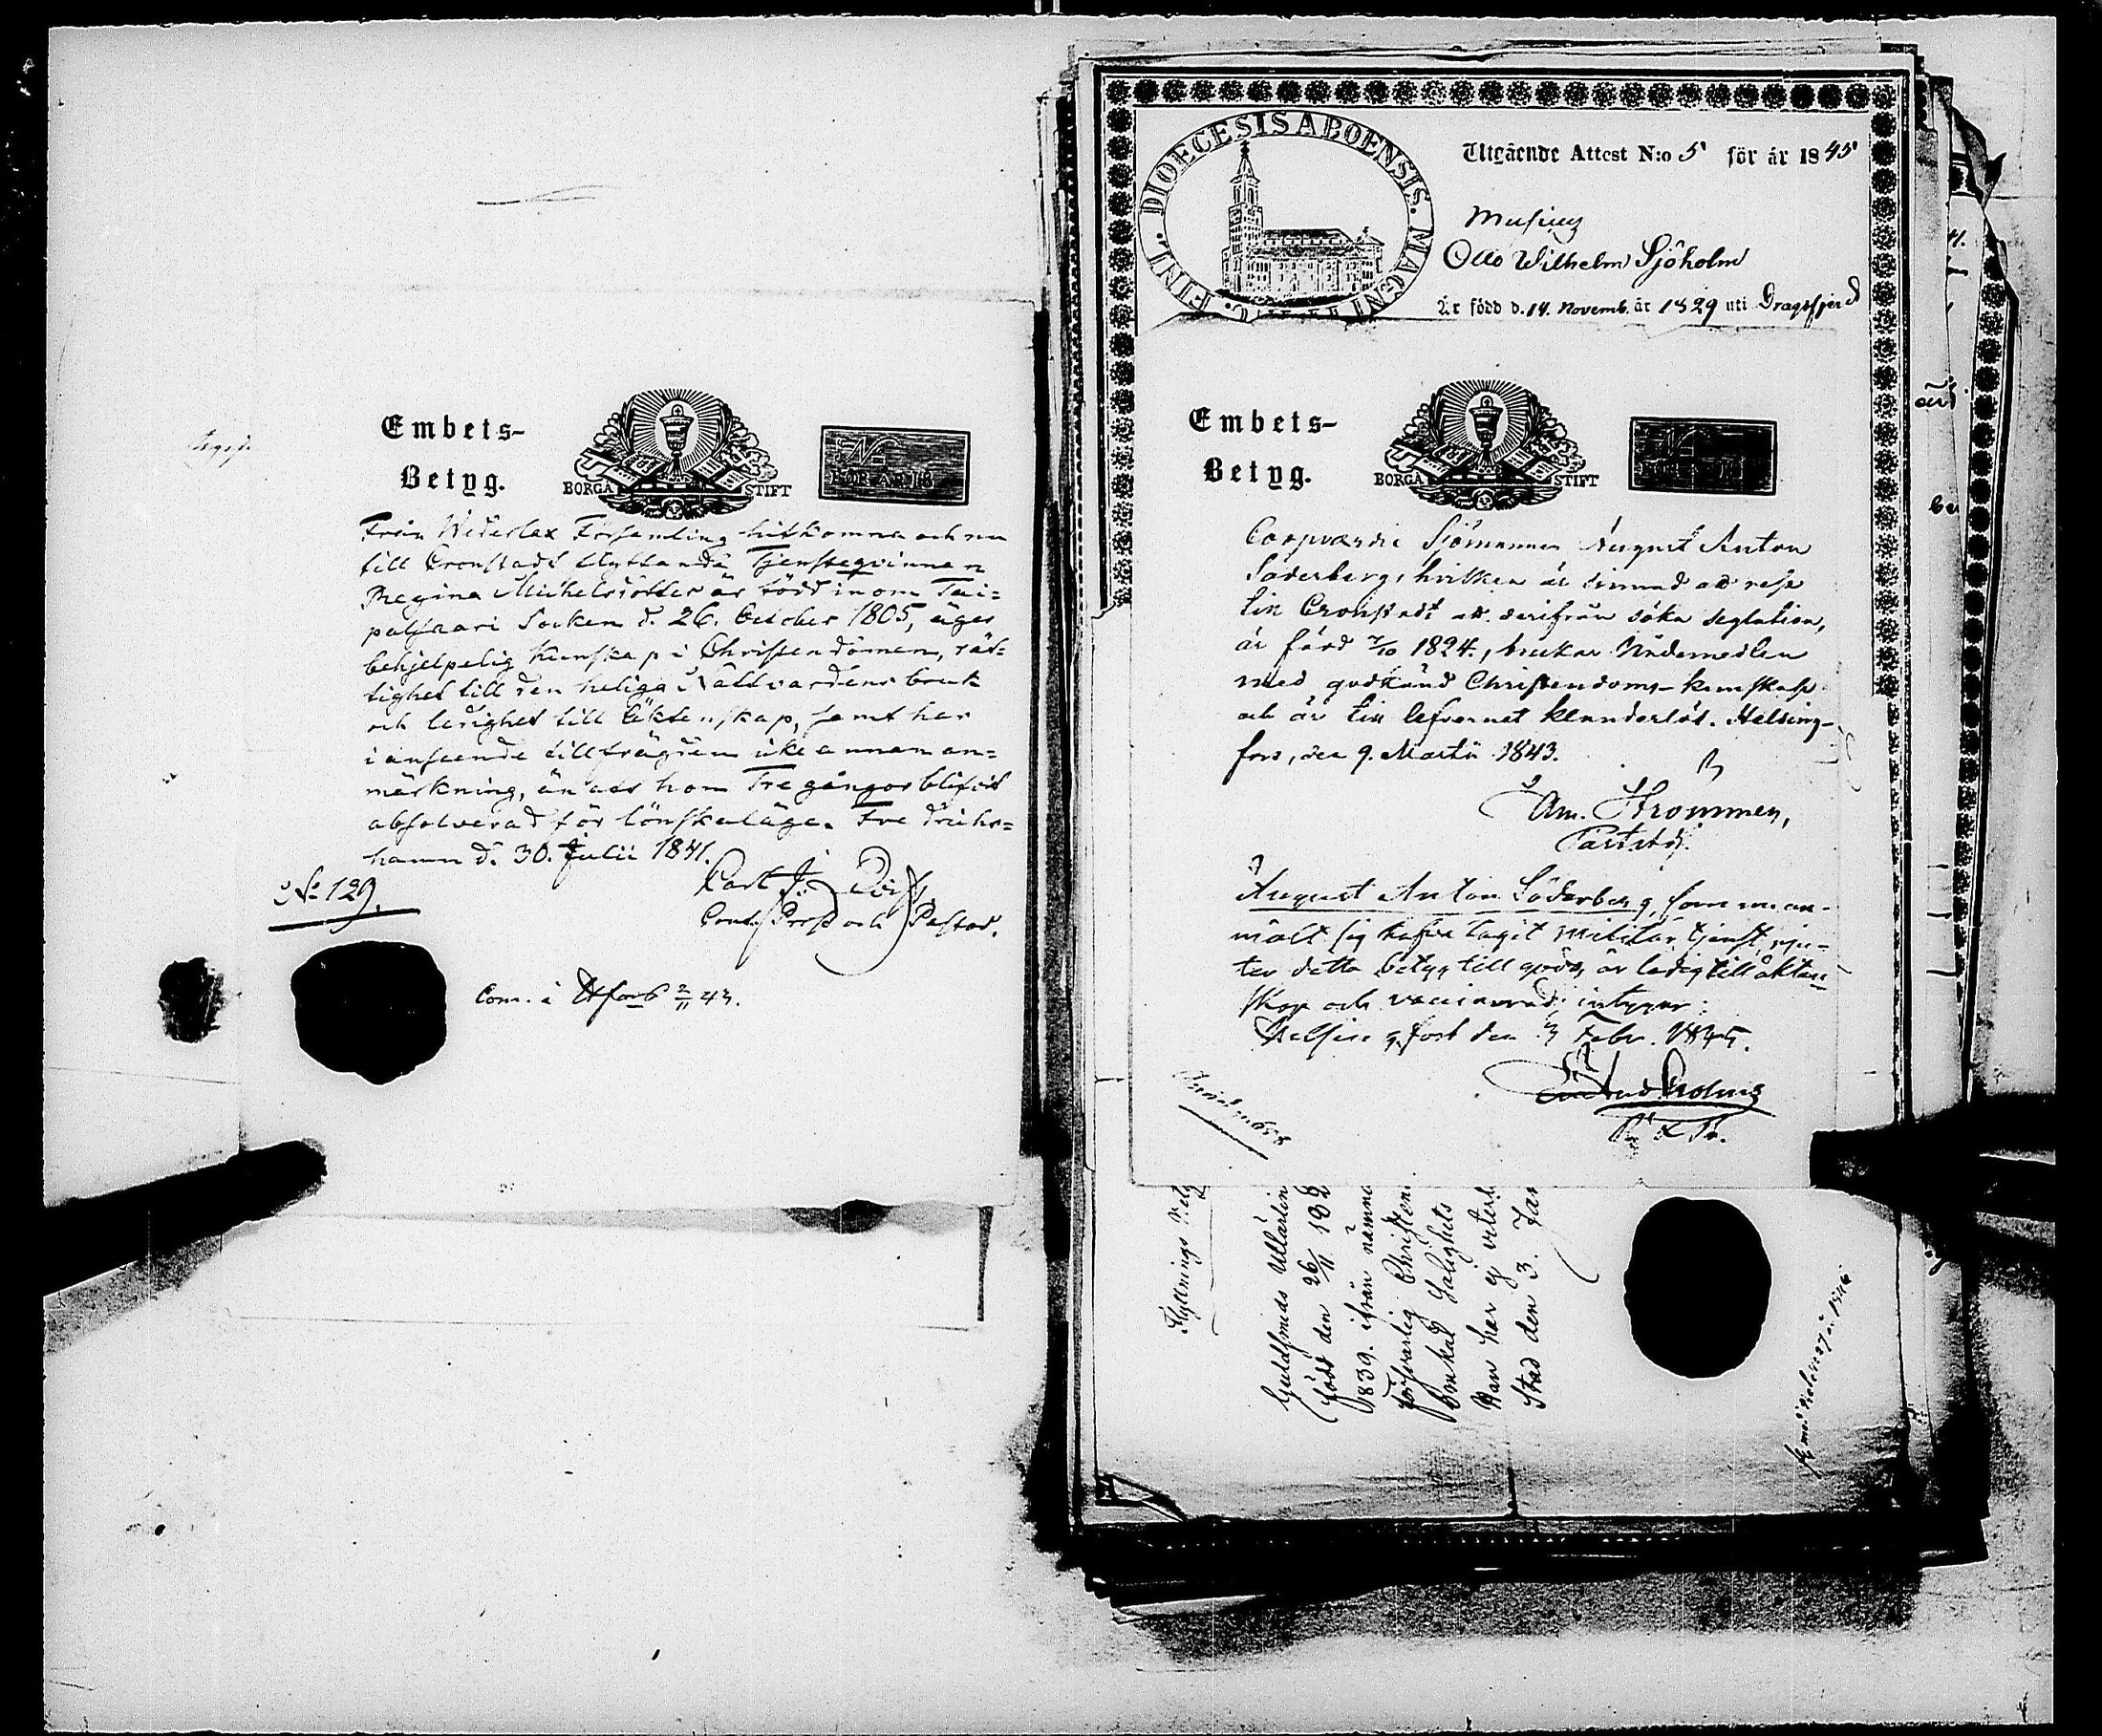 Embets-
Betyg.
BORGÅ STIFT
No
FÖR ÅR 18
Från Wederlax Församling hitkomna och nu
till Cronstadt flyttande Tjensteqvinnan
Regina Michelsdotter är född inom Tai-
palsaari Socken d. 26. October 1805, äger
behjelpelig kunskap i Christendomen, rät-
tighet till den heliga Nattvardens bruk
och ledighet till äktenskap, samt har
i anseende till frägden icke annan an-
märkning, än att hon Tre gånger blifvit
absolverad för lönskaläge. Fredrichs-
hamn d. 30. Julii 1841.
Carl J.
Cont. Prost och Pastor.
No 129.
Com. i Hfors 2/11 43.
DIOECESIS ABOENSIS. MAGNI FINL.
Utgående Attest N:o 5 för år 1845
Otto Wilhelm Sjöholm
Är född d. 14. Novemb. år 1829 uti Dragsfjerd
Embets-
Betyg.
BORGÅ STIFT
Coopværdie Sjömannen August Anton
Söderberg, hvilken är sinnad att resa
till Cronstadt att derifrån söka seglation,
är född 7/10 1824, brukar Nådemedlen
med godkänd Christendoms-kunskap
och är till lefvernet klanderlös. Helsing-
fors, den 9. Martii 1843.
Am.
August Anton Söderberg, som nu an-
mält sig hafva tagit militär tjenst, nju-
ter detta betyg till godo, är ledig till äkten-
skap och vaccinerad; intygar:
Helsingfors den 3 Febr. 1845.
Flyttnings
Guldsmeds
född den 26/11 182
1839. ifrån nämnd
försvarlig Christen
Salighets
Han har ej
Stad den 3. Jan